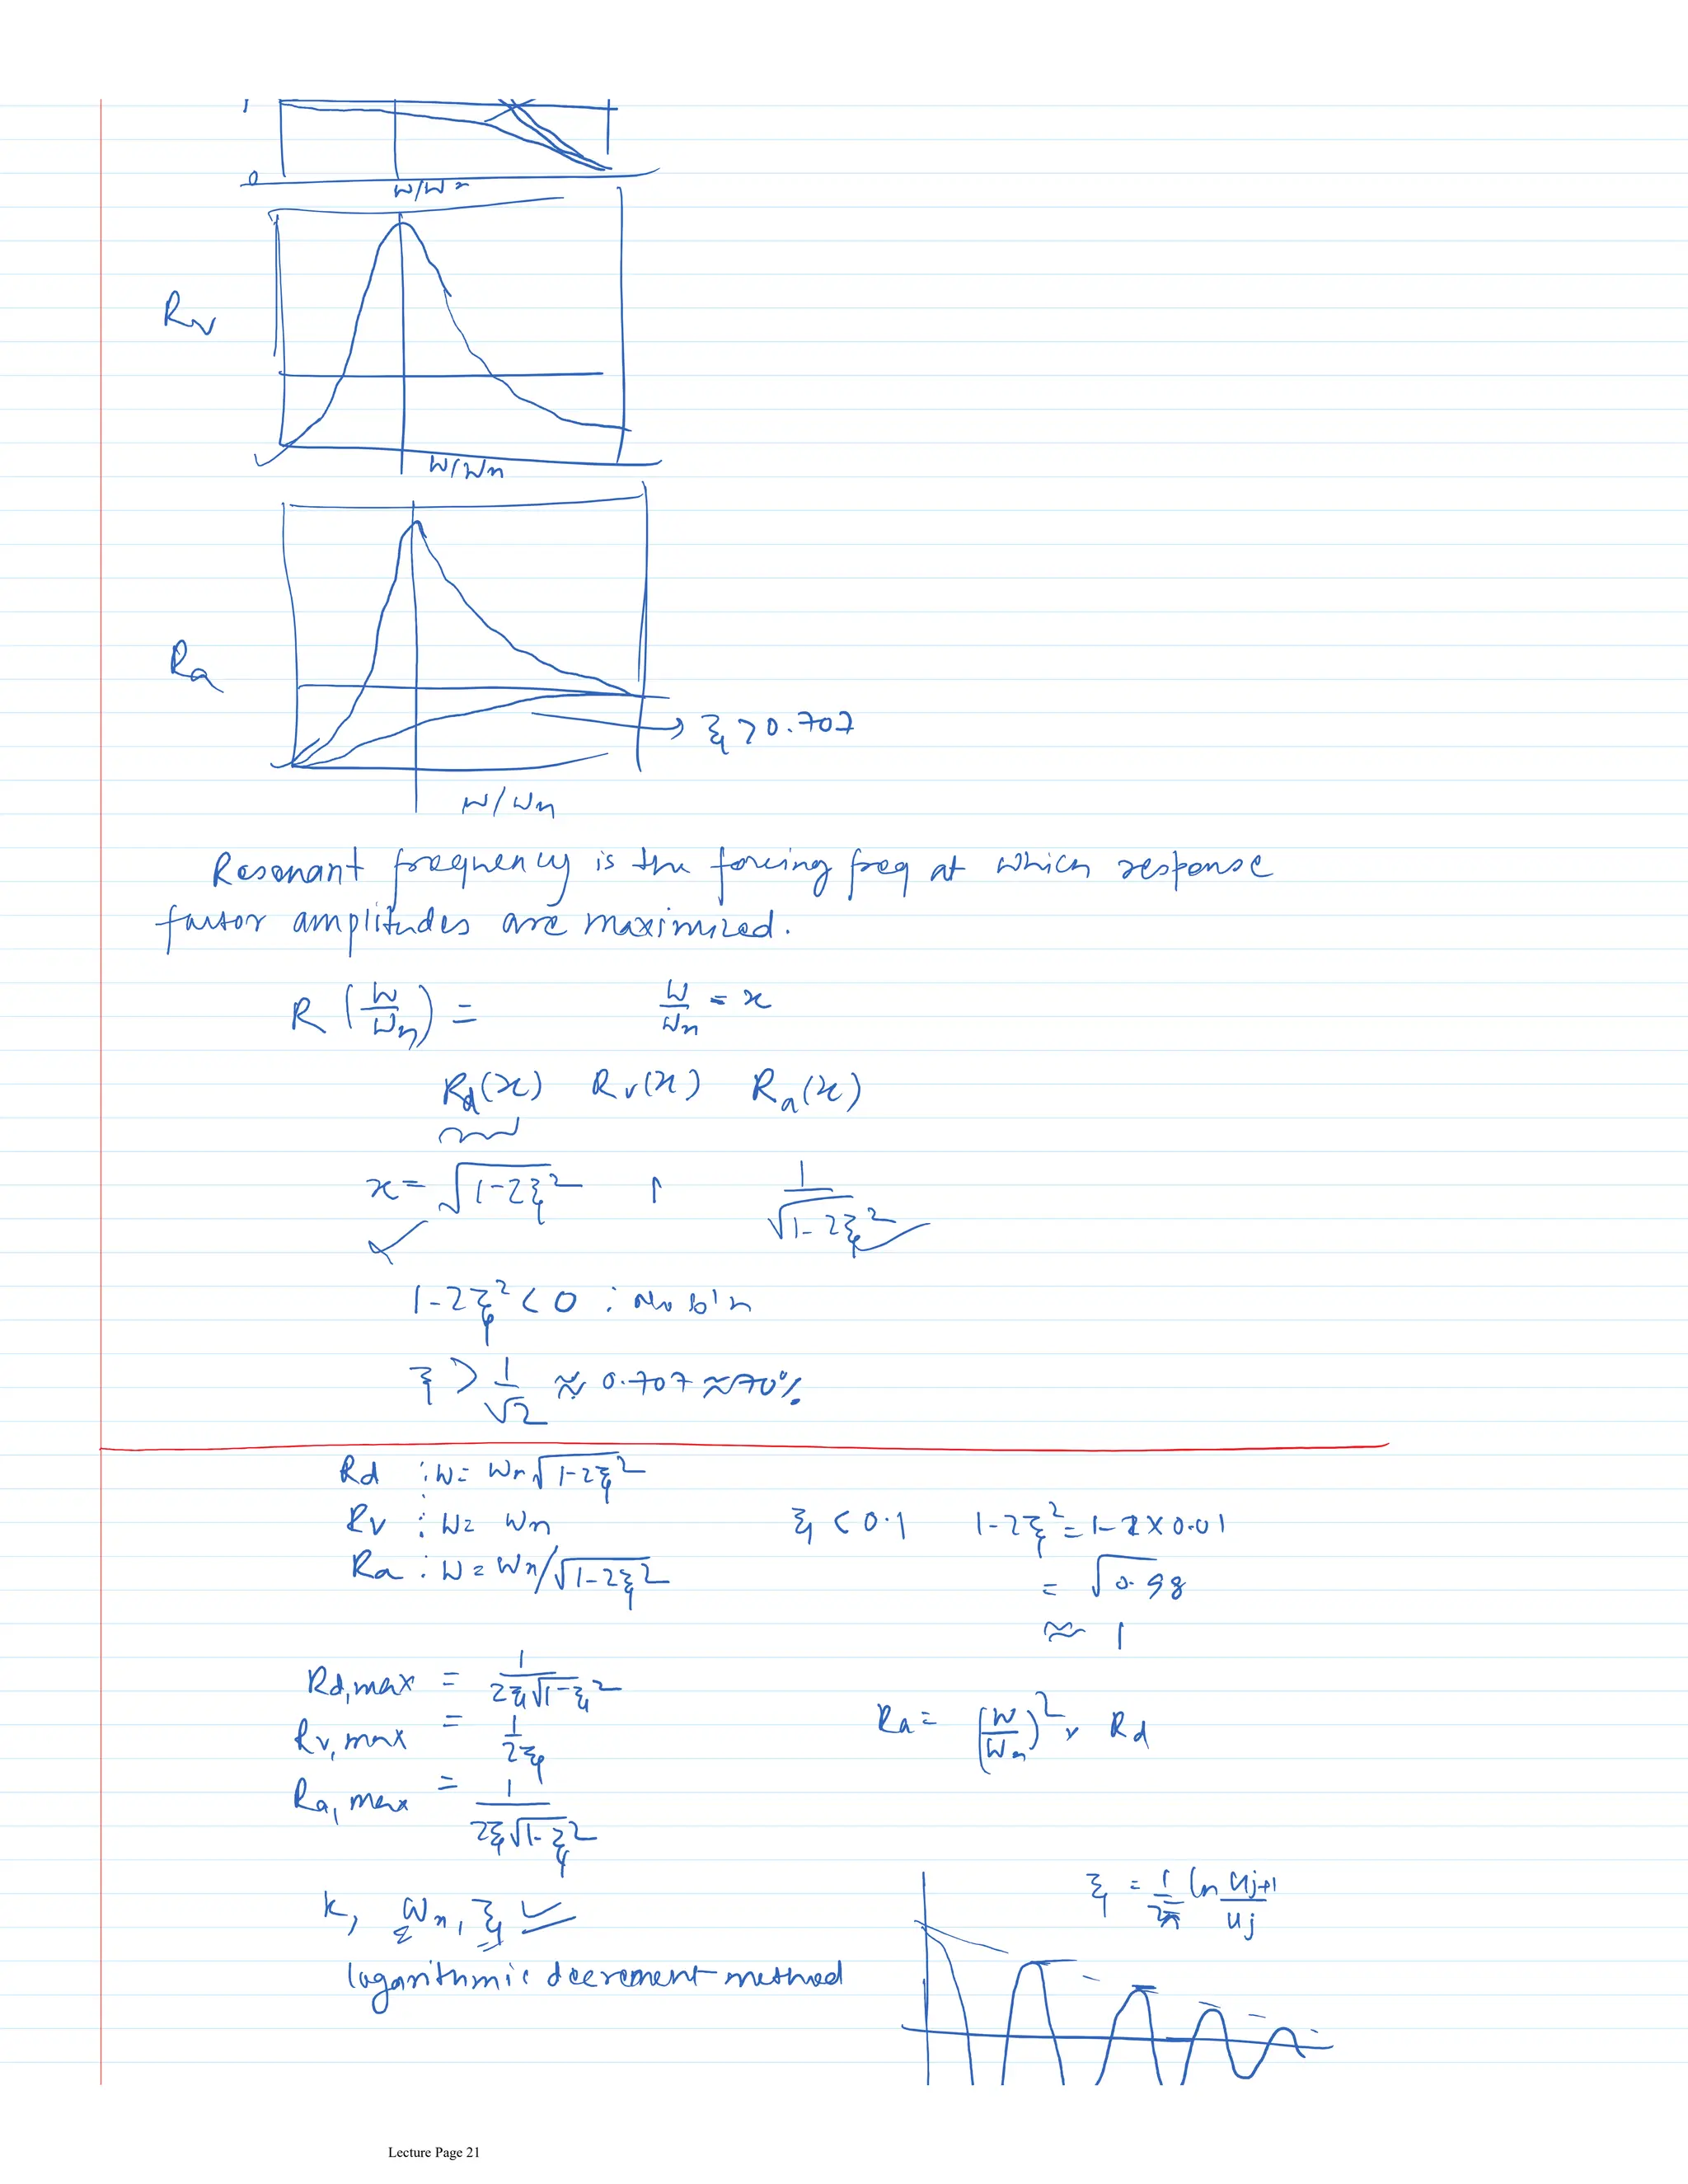 1
0
W/Wn
Rv
W/Wn
Ra
ξ > 0.707
W/Wn
Resonant frequency is the forcing freq at which response
factor amplitudes are maximized.
R (W/Wn) = W/Wn = x
Rd(x) Rv(x) Ra(x)
x = √(1-2ξ²) 1 1/√(1-2ξ²)
1-2ξ² < 0 : no sol'n
ξ > 1/√2 ≈ 0.707 ≈ 70%
Rd : W = Wn√(1-2ξ²)
Rv : W = Wn ξ < 0.1 1-2ξ² = 1-2×0.01
Ra : W = Wn/√(1-2ξ²) = √0.98
≈ 1
Rd,max = 1/(2ξ√(1-ξ²))
Rv,max = 1/(2ξ) Ra = (W/Wn)² × Rd
Ra,max = 1/(2ξ√(1-ξ²))
k, Wn, ξ ξ = 1/(2π) ln uj+1/uj
logarithmic decrement method
Lecture Page 21